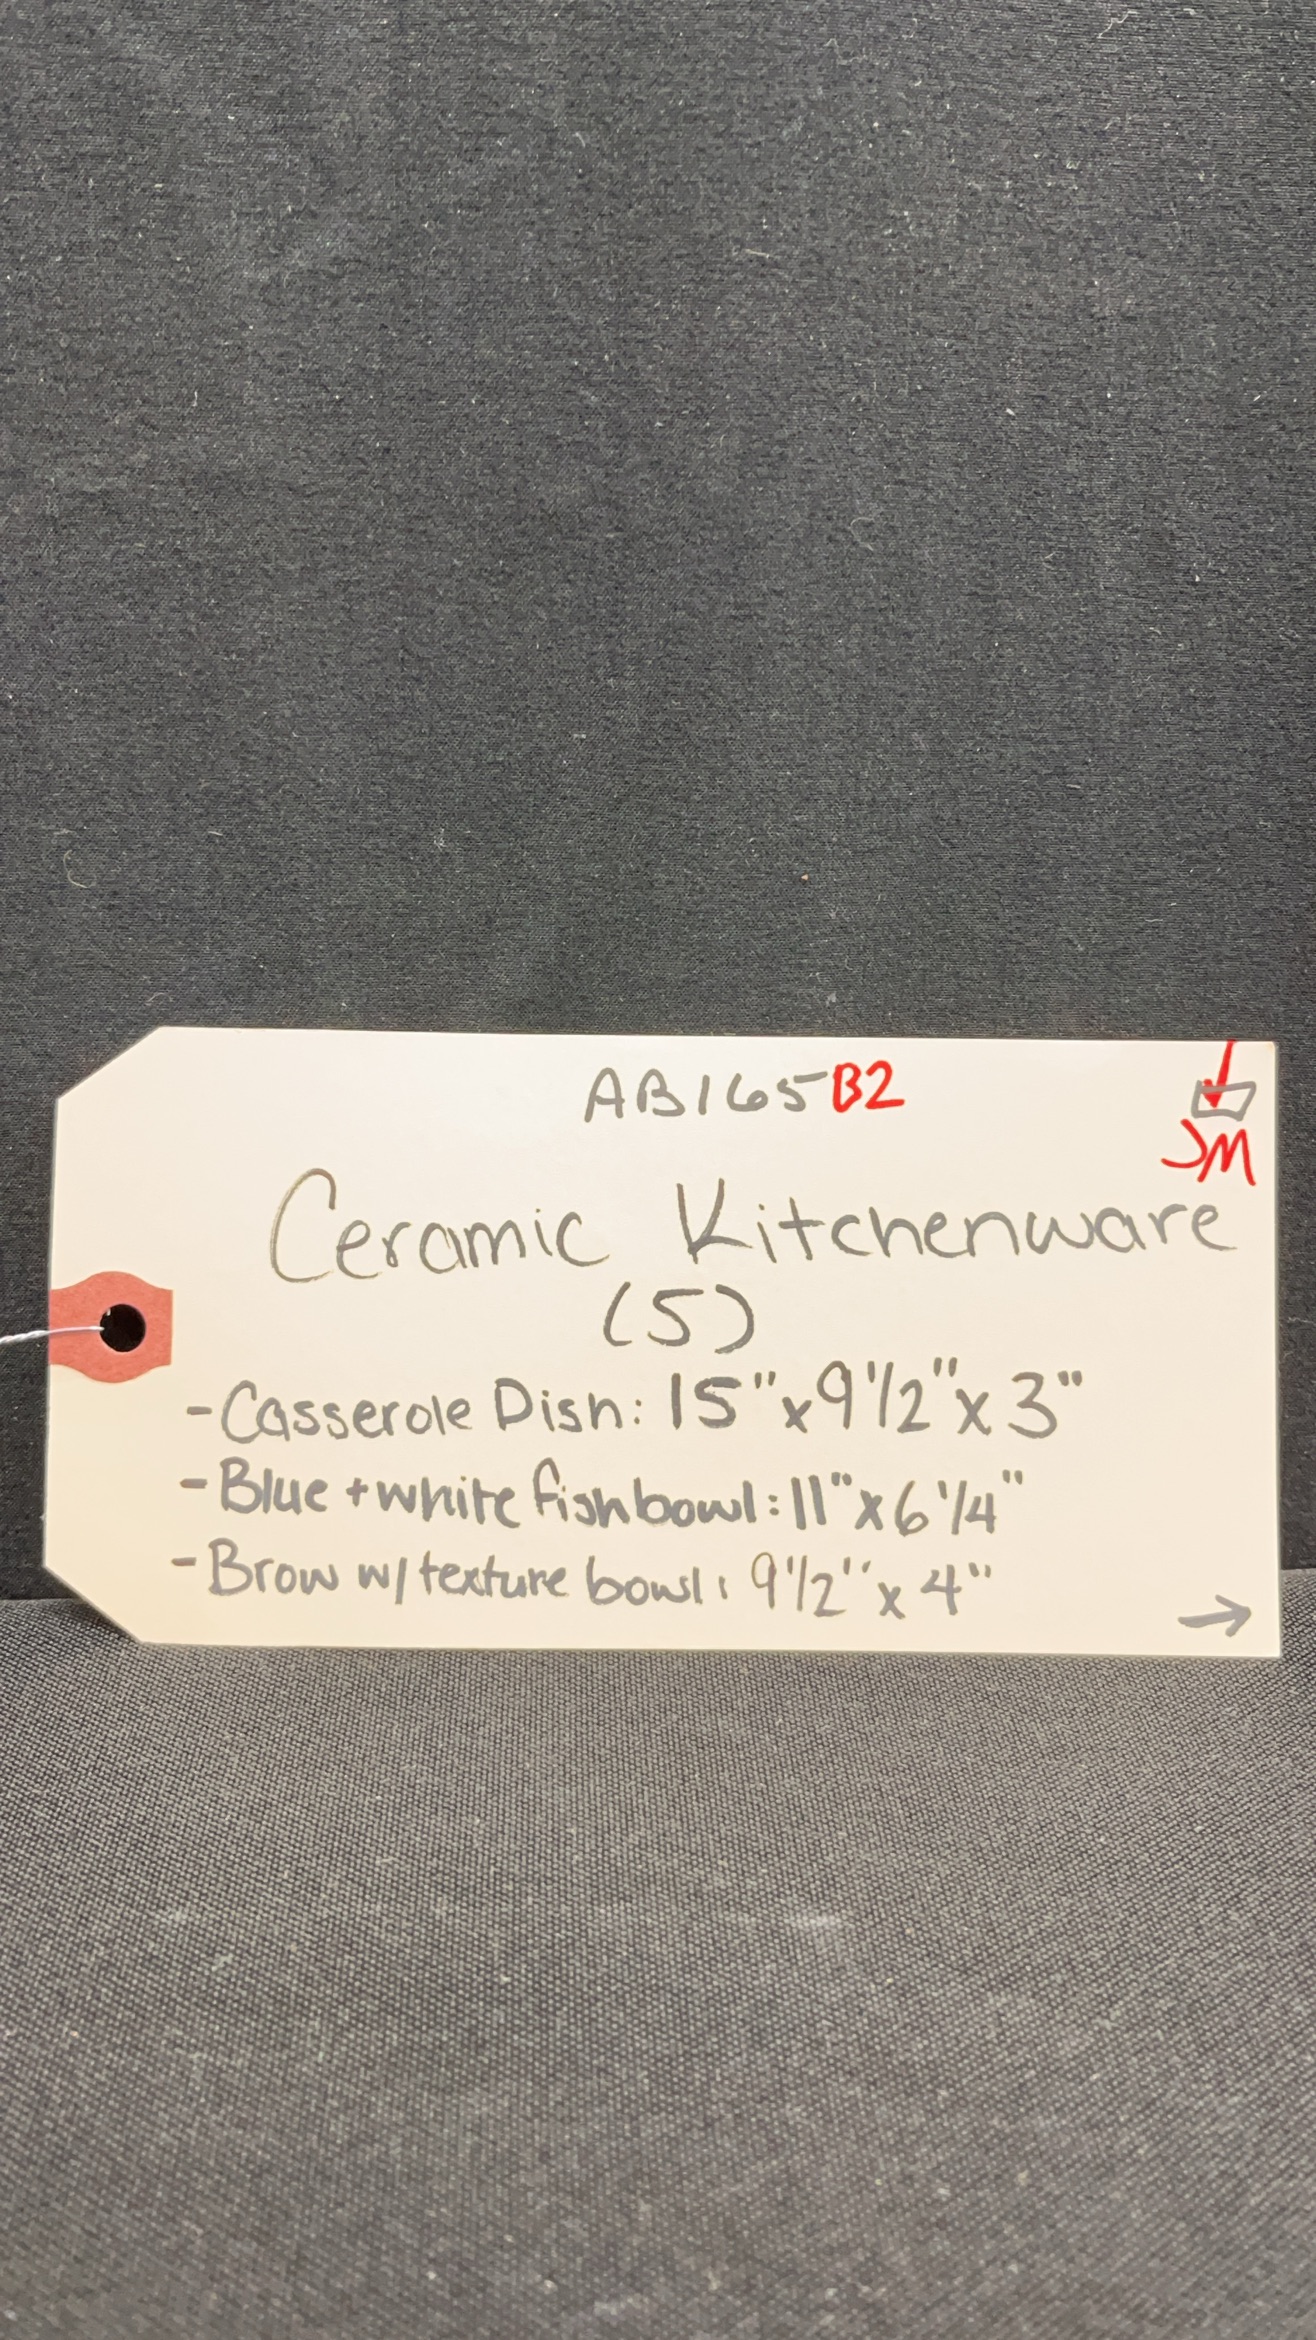 AB165B2
JM
Ceramic Kitchenware
(5)
- Casserole Dish: 15" x 9 1/2" x 3"
- Blue + white fish bowl: 11" x 6 1/4"
- Brow w/ texture bowl: 9 1/2" x 4"
→